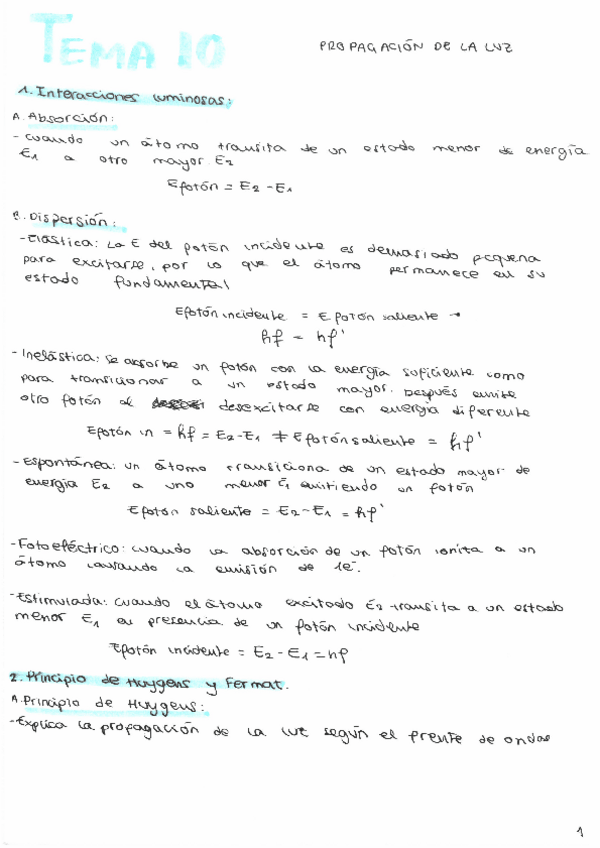 TEMA 10
PROPAGACIÓN DE LA LUZ
1. Interacciones luminosas:
A. Absorción:
- cuando un átomo transita de un estado menor de energía
E1 a otro mayor E2
Efotón = E2 - E1
B. Dispersión:
- Elástica: La E del fotón incidente es demasiado pequeña
para excitarse, por lo que el átomo permanece en su
estado fundamental
Efotón incidente = E fotón saliente →
hf = hf'
- Inelástica: se absorbe un fotón con la energía suficiente como
para transicionar a un estado mayor. Después emite
otro fotón al desexcitarse con energía diferente
Efotón in = hf = E2-E1 ≠ Efotón saliente = hf'
- Espontánea: un átomo transiciona de un estado mayor de
energía E2 a uno menor E1 emitiendo un fotón
Efotón saliente = E2-E1 = hf'
- Fotoeléctrico: cuando la absorción de un fotón ioniza a un
átomo causando la emisión de 1e-.
- Estimulada: cuando el átomo excitado E2 transita a un estado
menor E1 en presencia de un fotón incidente
Efotón incidente = E2-E1 = hf
2. Principio de Huygens y Fermat.
A. Principio de Huygens:
- Explica la propagación de la luz según el frente de ondas
1